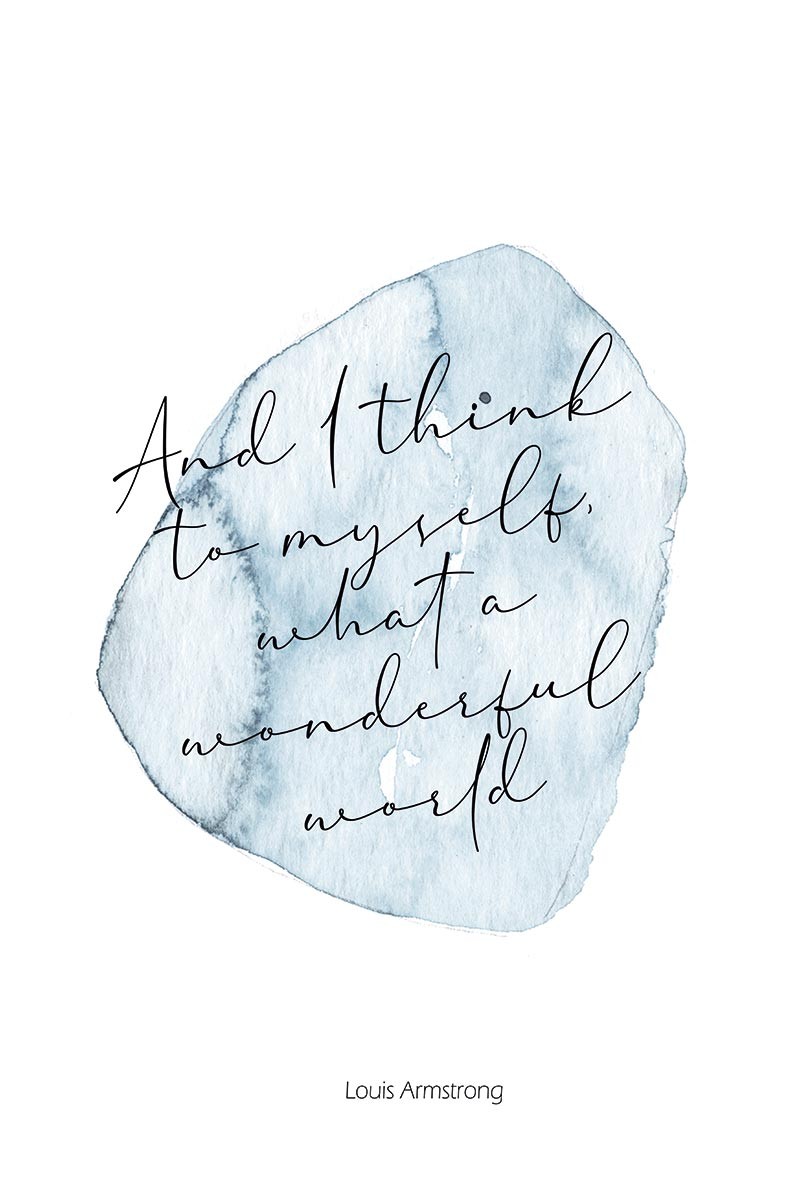 And I think
to myself,
what a
wonderful
world
Louis Armstrong